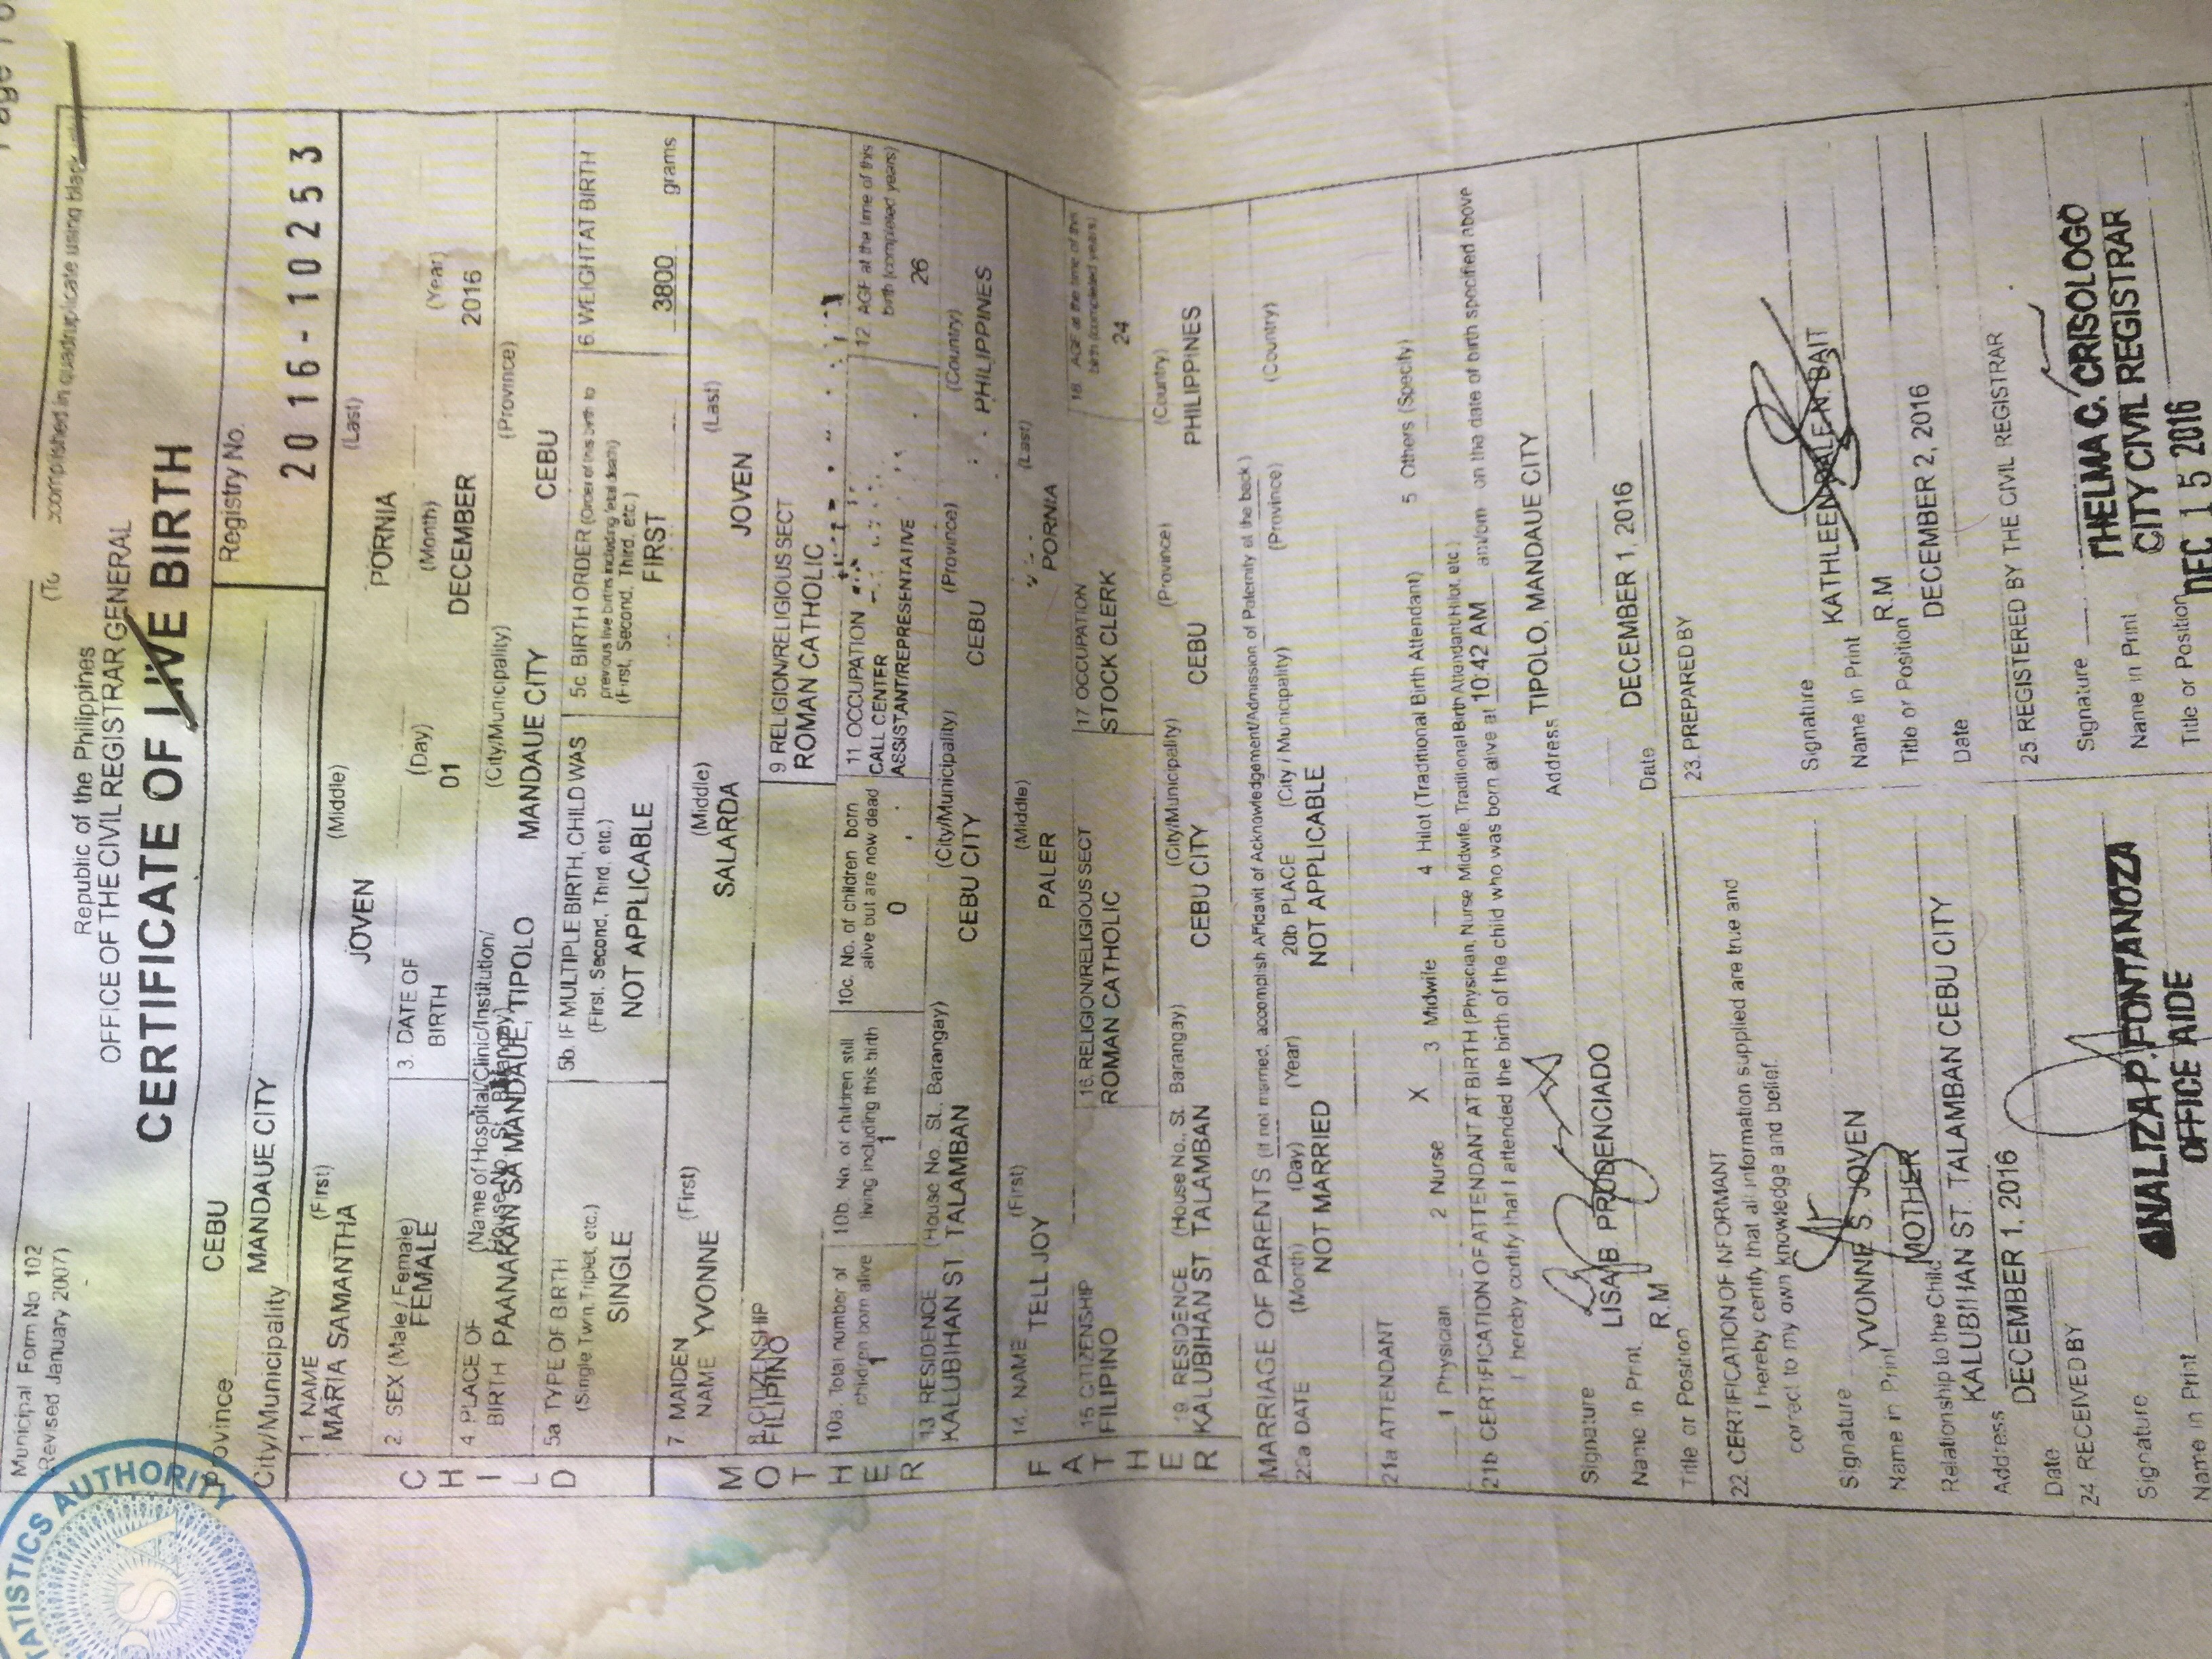 Municipal Form No 102
(Revised January 2007)
accomplished in quadruplicate using black
Republic of the Philippines
OFFICE OF THE CIVIL REGISTRAR GENERAL
CERTIFICATE OF LIVE BIRTH
Province CEBU
Registry No.
City/Municipality MANDAUE CITY
2016-10253
CHILD
1 NAME (First) (Middle) (Last)
MARIA SAMANTHA JOVEN PORNIA
2 SEX (Male / Female) 3. DATE OF BIRTH (Day) (Month) (Year)
FEMALE 01 DECEMBER 2016
4 PLACE OF BIRTH (Name of Hospital/Clinic/Institution/ House No., St., Barangay) (City/Municipality) (Province)
PAANAKAN SA MANDAUE, TIPOLO MANDAUE CITY CEBU
5a TYPE OF BIRTH 5b. IF MULTIPLE BIRTH, CHILD WAS 5c. BIRTH ORDER (Order of this birth to 6. WEIGHT AT BIRTH
(Single, Twin, Triplet, etc.) (First, Second, Third, etc.) previous live births including fetal death)
(First, Second, Third, etc.)
SINGLE NOT APPLICABLE FIRST 3800 grams
MOTHER
7 MAIDEN NAME (First) (Middle) (Last)
YVONNE SALARDA JOVEN
8. CITIZENSHIP 9 RELIGION/RELIGIOUS SECT
FILIPINO ROMAN CATHOLIC
10a. Total number of children born alive 10b. No. of children still living including this birth 10c. No. of children born alive but are now dead 11 OCCUPATION 12. AGE at the time of this birth (completed years)
1 1 0 CALL CENTER ASSISTANT/REPRESENTATIVE 26
13 RESIDENCE (House No., St., Barangay) (City/Municipality) (Province) (Country)
KALUBIHAN ST. TALAMBAN CEBU CITY CEBU PHILIPPINES
FATHER
14. NAME (First) (Middle) (Last)
TELL JOY PALER PORNIA
15 CITIZENSHIP 16. RELIGION/RELIGIOUS SECT 17 OCCUPATION 18. AGE at the time of this birth (completed years)
FILIPINO ROMAN CATHOLIC STOCK CLERK 24
19. RESIDENCE (House No., St. Barangay) (City/Municipality) (Province) (Country)
KALUBIHAN ST. TALAMBAN CEBU CITY CEBU PHILIPPINES
MARRIAGE OF PARENTS (If not married, accomplish Affidavit of Acknowledgement/Admission of Paternity at the back)
20a DATE (Month) (Day) (Year) 20b PLACE (City / Municipality) (Province) (Country)
NOT MARRIED NOT APPLICABLE
21a ATTENDANT
1 Physician 2 Nurse X 3 Midwife 4 Hilot (Traditional Birth Attendant) 5 Others (Specify)
21b CERTIFICATION OF ATTENDANT AT BIRTH (Physician, Nurse Midwife, Traditional Birth Attendant/Hilot, etc.)
I hereby certify that I attended the birth of the child who was born alive at 10:42 AM am/pm on the date of birth specified above
Signature Address TIPOLO, MANDAUE CITY
Name in Print LISA B. PRUDENCIADO
Title or Position R.M Date DECEMBER 1, 2016
22. CERTIFICATION OF INFORMANT
I hereby certify that all information supplied are true and
correct to my own knowledge and belief.
Signature
Name in Print YVONNE S. JOVEN
Relationship to the Child MOTHER
Address KALUBIHAN ST TALAMBAN CEBU CITY
Date DECEMBER 1, 2016
23. PREPARED BY
Signature
Name in Print KATHLEEN
Title or Position R.M
Date DECEMBER 2, 2016
24 RECEIVED BY
Signature
Name in Print ANALIZA P. FONTANOZA
OFFICE AIDE
25 REGISTERED BY THE CIVIL REGISTRAR
Signature
Name in Print THELMA C. CRISOLOGO
Title or Position CITY CIVIL REGISTRAR
DEC 15 2016
STATISTICS AUTHORITY
PSA